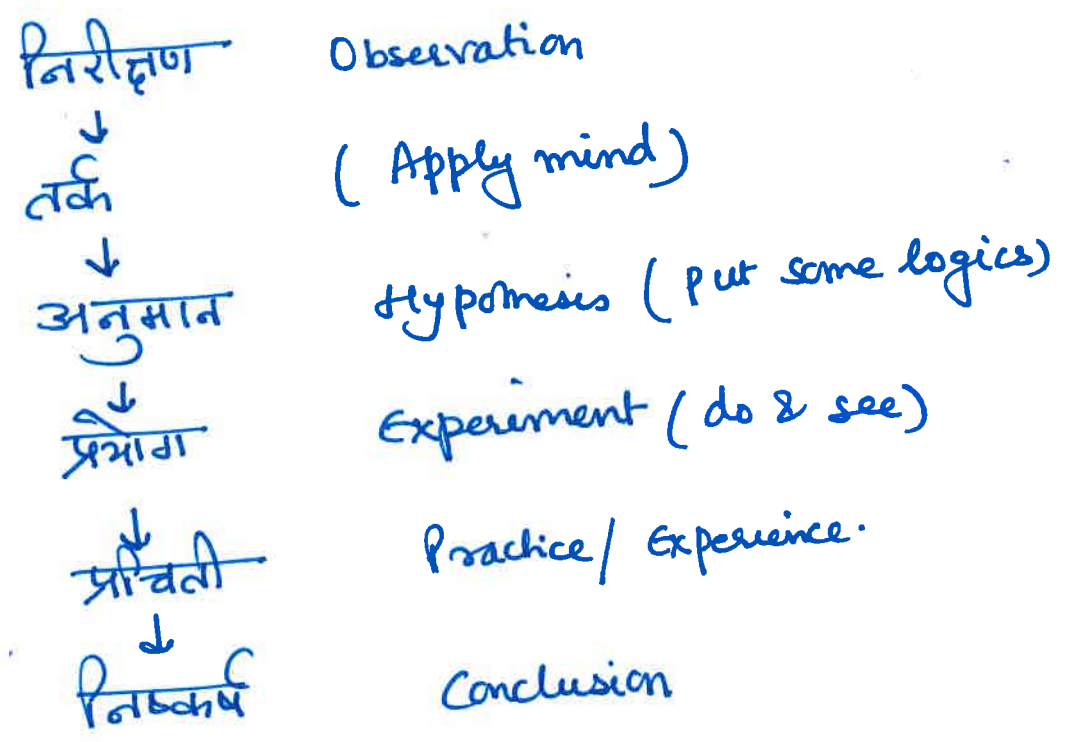 निरीक्षण Observation
↓
तर्क ( Apply mind )
↓
अनुमान Hypothesis ( put some logics )
↓
प्रयोग Experiment ( do & see )
↓
प्रचिती Practice / Experience.
↓
निष्कर्ष Conclusion